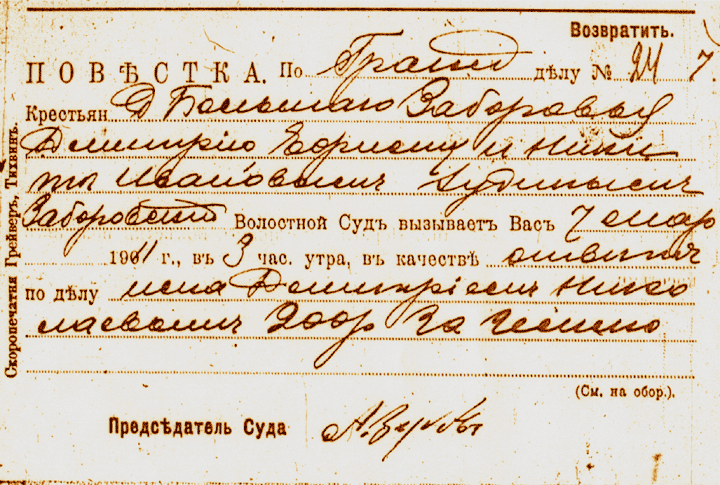 Возвратить.
ПОВѢСТКА. По Гражд дѣлу № 24
Крестьян Д Большаго Заборовья
Дмитрію Ефимову и Ники
ты Ивановыхъ
Заборовскій Волостной Судъ вызываетъ Васъ 7 мар
1911 г., въ 3 час. утра, въ качествѣ отвѣтч
по дѣлу иска Дмитріемъ Нико
лаевымъ за
(См. на обор.).
Предсѣдатель Суда
Скоропечатня Грейверъ, Тихвинъ.